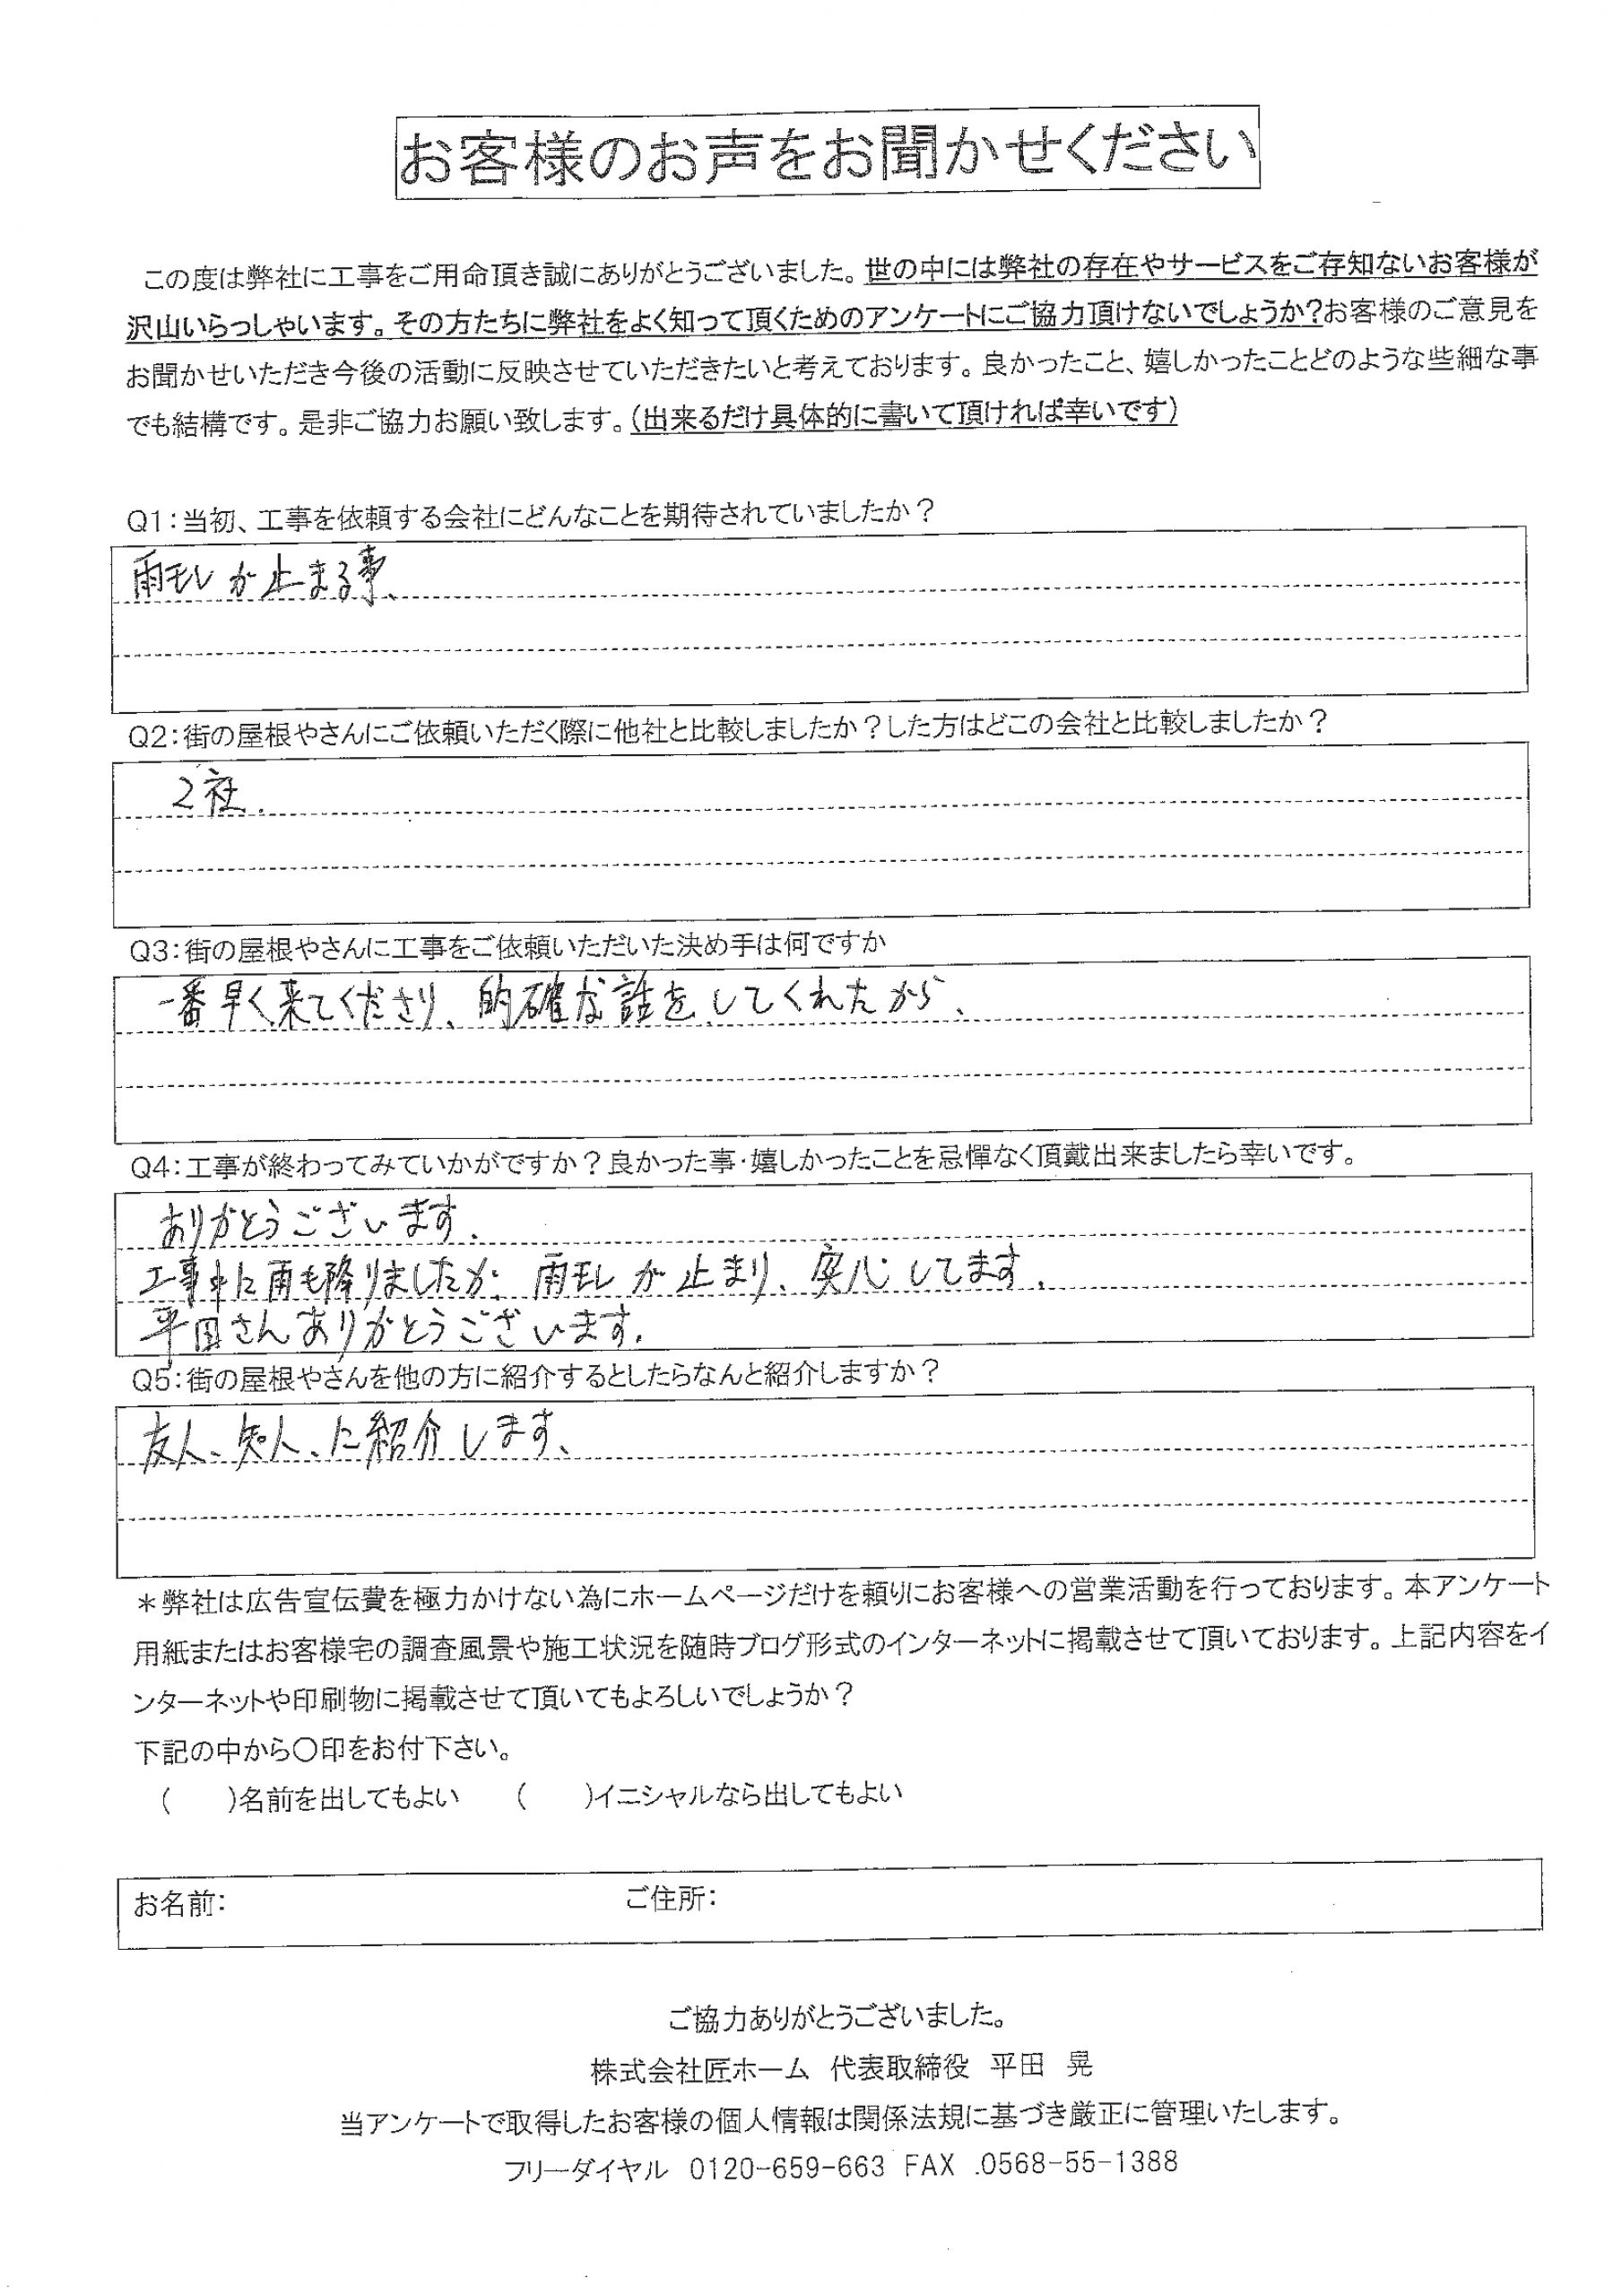 お客様のお声をお聞かせください
この度は弊社に工事をご用命頂き誠にありがとうございました。世の中には弊社の存在やサービスをご存知ないお客様が
沢山いらっしゃいます。その方たちに弊社をよく知って頂くためのアンケートにご協力頂けないでしょうか?お客様のご意見を
お聞かせいただき今後の活動に反映させていただきたいと考えております。良かったこと、嬉しかったことどのような些細な事
でも結構です。是非ご協力お願い致します。(出来るだけ具体的に書いて頂ければ幸いです)
Q1:当初、工事を依頼する会社にどんなことを期待されていましたか?
雨モレが止まる事、
Q2:街の屋根やさんにご依頼いただく際に他社と比較しましたか?した方はどこの会社と比較しましたか?
2社.
Q3:街の屋根やさんに工事をご依頼いただいた決め手は何ですか
一番早く来てくださり、的確な話をしてくれたから、
Q4:工事が終わってみていかがですか?良かった事・嬉しかったことを忌憚なく頂戴出来ましたら幸いです。
ありがとうございます.
工事中に雨も降りましたが、雨モレが止まり、安心してます.
平田さんありがとうございます.
Q5:街の屋根やさんを他の方に紹介するとしたらなんと紹介しますか?
友人、知人、に紹介します、
*弊社は広告宣伝費を極力かけない為にホームページだけを頼りにお客様への営業活動を行っております。本アンケート
用紙またはお客様宅の調査風景や施工状況を随時ブログ形式のインターネットに掲載させて頂いております。上記内容をイ
ンターネットや印刷物に掲載させて頂いてもよろしいでしょうか?
下記の中から〇印をお付下さい。
(　　)名前を出してもよい　　(　　)イニシャルなら出してもよい
お名前:　ご住所:
ご協力ありがとうございました。
株式会社匠ホーム　代表取締役　平田　晃
当アンケートで取得したお客様の個人情報は関係法規に基づき厳正に管理いたします。
フリーダイヤル　0120-659-663 FAX .0568-55-1388